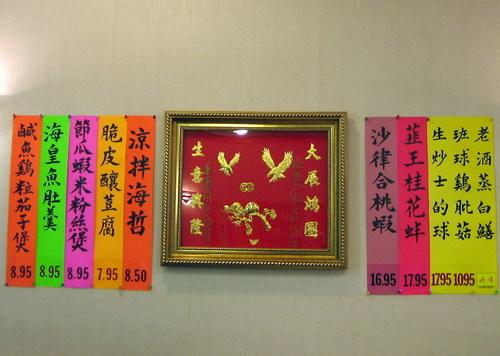 老酒蒸白鱔
班球鷄肶菇
1095
生炒士的球
1795
韮王桂花蚌
17.95
沙律合桃蝦
16.95
大展鴻圖
生意興隆
涼拌海哲
8.50
脆皮釀荳腐
7.95
節瓜蝦米粉絲煲
8.95
海皇魚肚羹
8.95
鹹魚鷄粒茄子煲
8.95